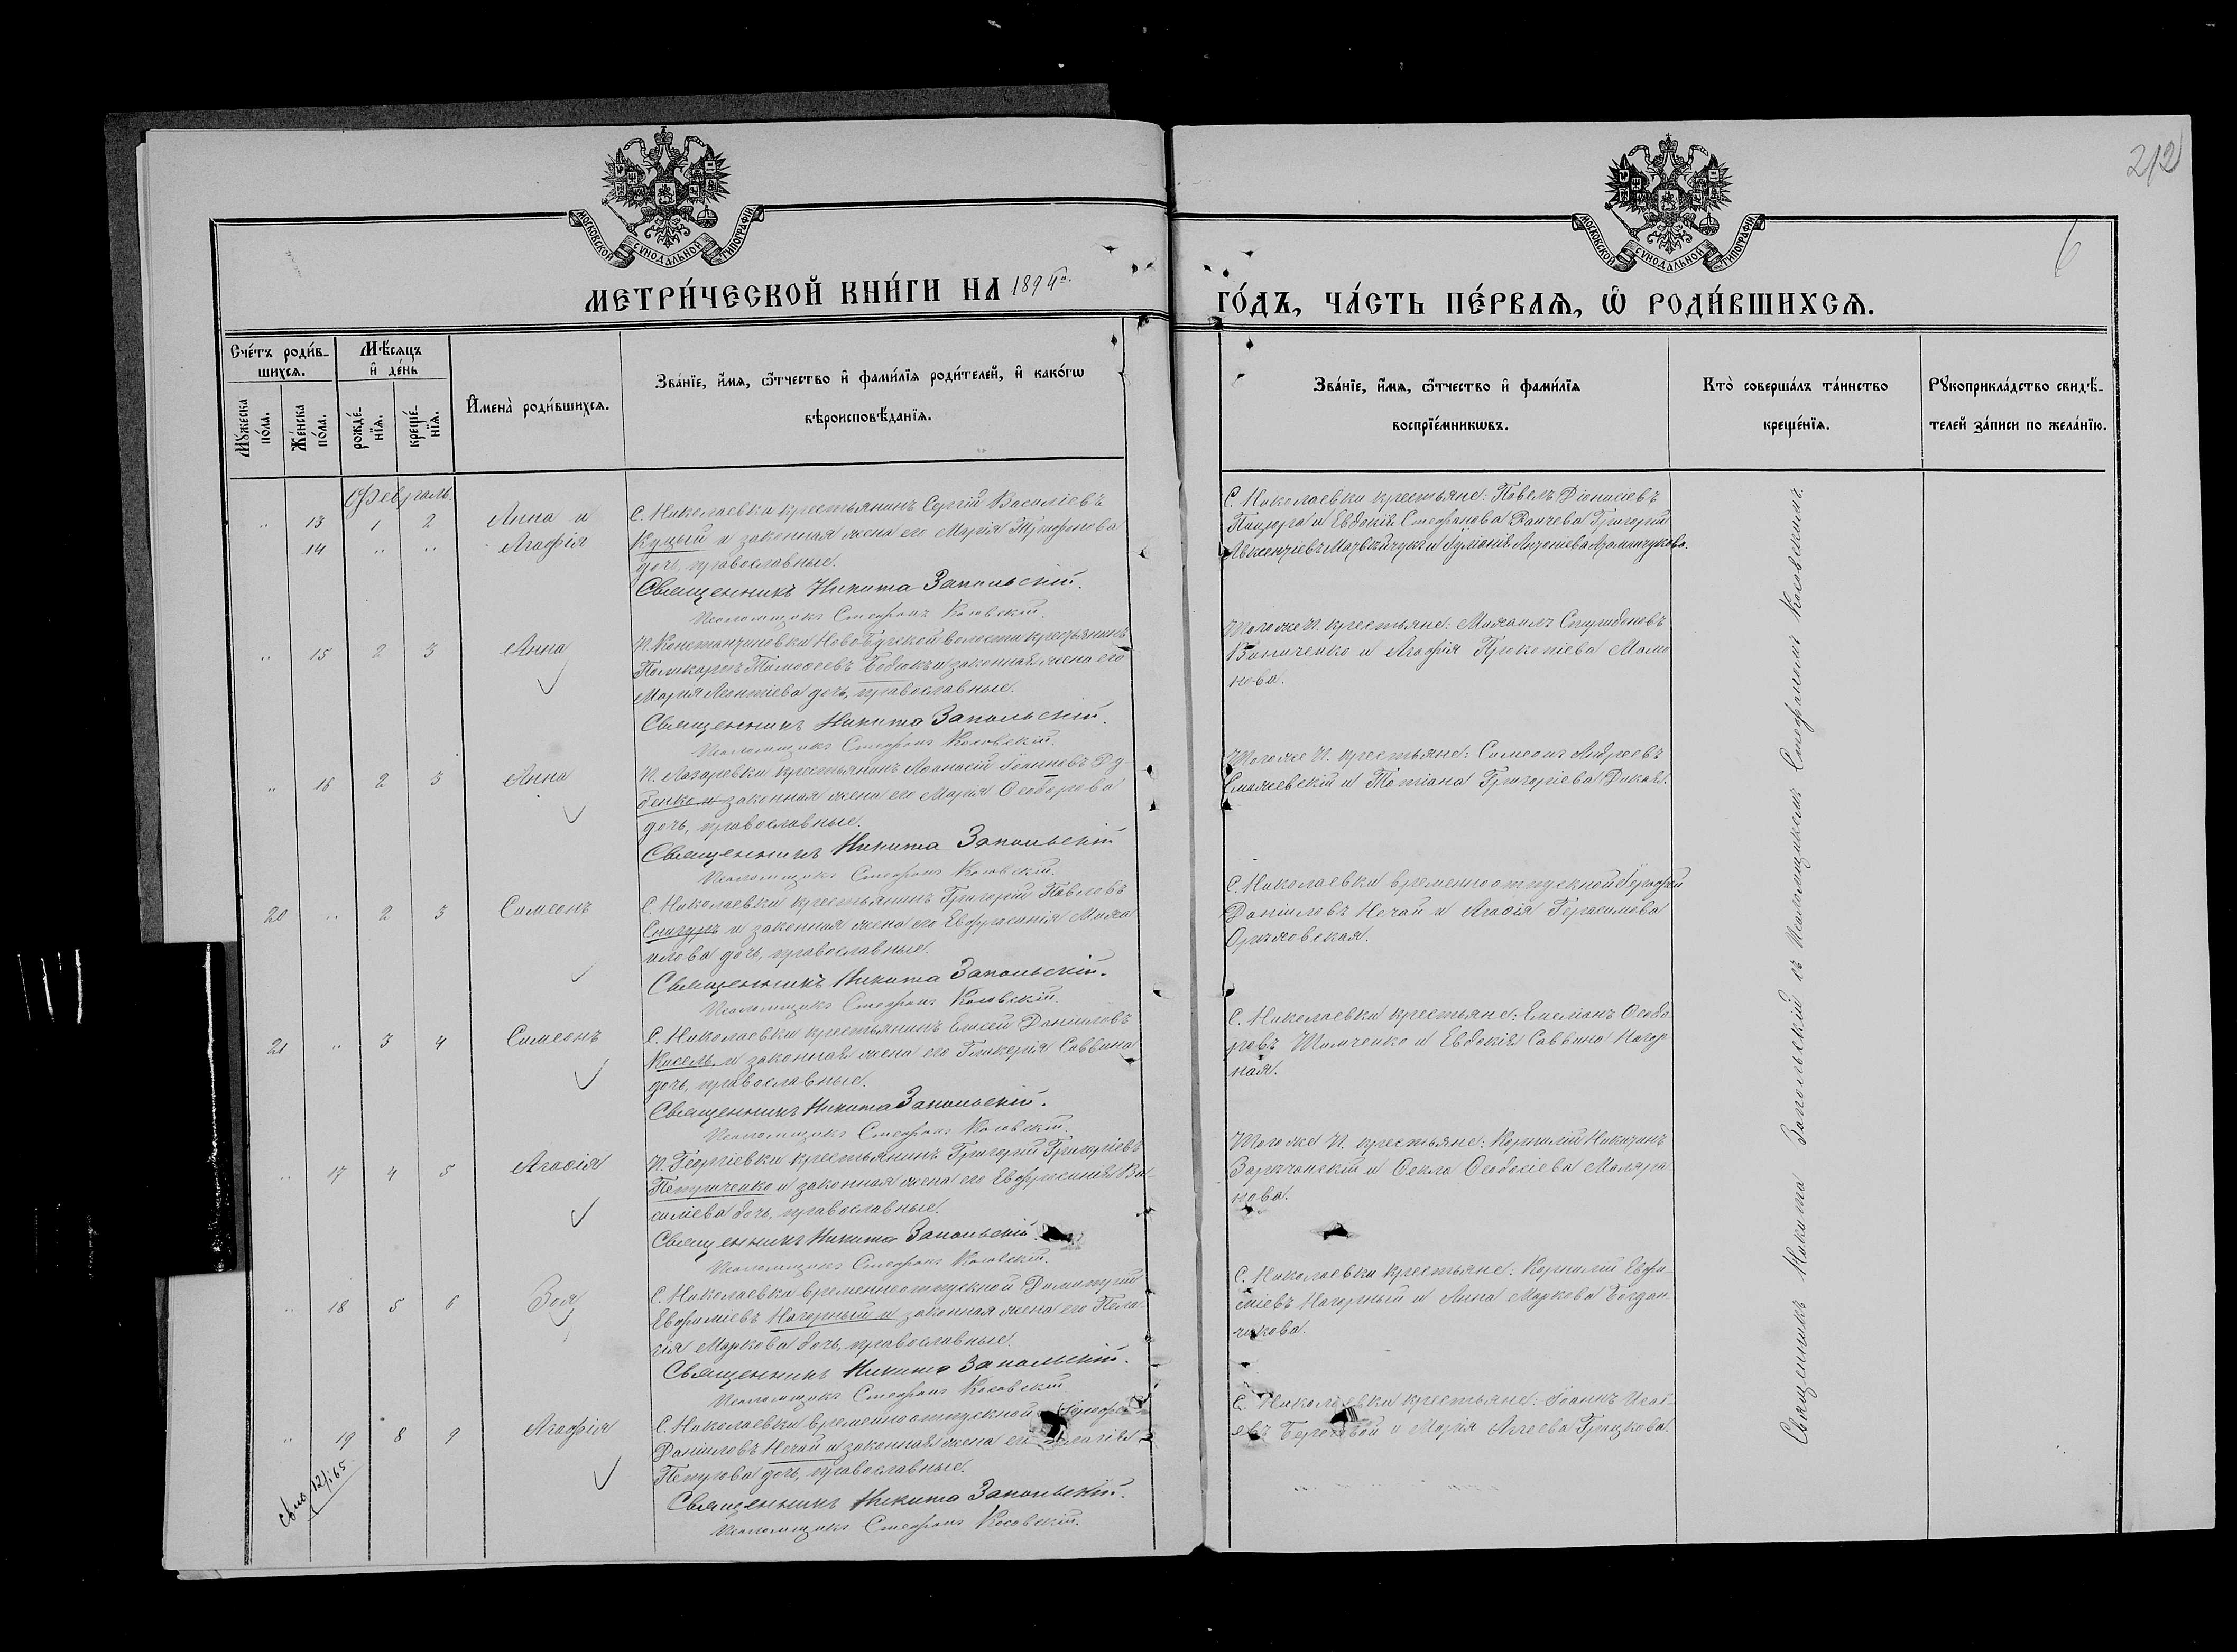 212
6
МОСКОВСКОЙ СѴНОДАЛЬНОЙ ТИПОГРАФІИ
МОСКОВСКОЙ СѴНОДАЛЬНОЙ ТИПОГРАФІИ
МЕТРИ́ЧЕСКОЙ КНИ́ГИ НА 1894
ГО́ДЪ, ЧА́СТЬ ПЕ́РВАѦ, Ѡ РОДИ́ВШИХСѦ.
Сче́тъ роди́в-
шихсѧ.
Мꙋ́жеска
по́ла.
Же́нска
по́ла.
Мѣ́сѧцъ
и҆ де́нь
рожде́-
нїѧ.
креще́-
нїѧ.
И҆мена̀ роди́вшихсѧ.
Зва́нїе, и҆́мѧ, ѻ҆́тчество и҆ фами́лїѧ роди́телей, и҆ како́гѡ
вѣроисповѣ́данїѧ.
Зва́нїе, и҆́мѧ, ѻ҆́тчество и҆ фами́лїѧ
воспрїе́мникѡвъ.
Кто̀ соверша́лъ та́инство
креще́нїѧ.
Рꙋкоприкла́дство свидѣ́-
телей за́писи по жела́нїю.
Февраль.
„ 13 1 2 Анна и
14 „ „ Агафія
С. Николаевки крестьянинъ Сергій Василіевъ
Куцый и законная жена его Марія Трифонова
дочь, православные.
Священникъ Никита Запольскій.
Псаломщикъ Стефанъ Косовскій.
С. Николаевки крестьяне: Павелъ Діонисіевъ
и Евдокія Стефанова Григорій
Авксентіевъ и Іуліанія Антоніева
„ 15 2 3 Анна
П. Константиновки Новобугской волости крестьянинъ
Поликарпъ Тимофеевъ Бабюкъ и законная жена его
Марія дочь, православные.
Священникъ Никита Запольскій.
Псаломщикъ Стефанъ Косовскій.
Того же П. крестьяне: Михаилъ Спиридоновъ
Винниченко и Агафія Прокопіева Мамо
нова.
„ 16 2 3 Анна
П. Лазаревки крестьянинъ Афанасій Іоанновъ Ду-
бенко и законная жена его Марія Ѳеодорова
дочь, православные.
Священникъ Никита Запольскій
Псаломщикъ Стефанъ Косовскій.
Того же П. крестьяне: Симеонъ Андреевъ
и Татіана Григоріева Дикая.
20 „ 2 3 Симеонъ
С. Николаевки крестьянинъ Григорій Павловъ
Снигуръ и законная жена его Евфросинія Миха
илова дочь, православные.
Священникъ Никита Запольскій.
Псаломщикъ Стефанъ Косовскій.
С. Николаевки временноотпускной
Даніиловъ Нечай и Агафія Герасимова
21 „ 3 4 Симеонъ
С. Николаевки крестьянинъ Елисей Даніиловъ
Кисель и законная жена его Гликерія Саввина
дочь, православные.
Священникъ Никита Запольскій.
Псаломщикъ Стефанъ Косовскій.
С. Николаевки крестьяне: Емеліанъ Ѳеодо
ровъ Шамченко и Евдокія Саввина Нагор
ная.
„ 17 4 5 Агафія
П. Георгіевки крестьянинъ Григорій Григоріевъ
Петриченко и законная жена его Евфросинія Ва-
силіева дочь, православные.
Священникъ Никита Запольскій.
Псаломщикъ Стефанъ Косовскій.
Того же П. крестьяне: Корнилій Никитинъ
Заричанскій и Ѳекла Ѳеодосіева Маляра
нова.
„ 18 5 6 Зоя
С. Николаевки временноотпускной Димитрій
Евфиміевъ Нагорный и законная жена его Пела
гія Маркова дочь, православные.
Священникъ Никита Запольскій.
Псаломщикъ Стефанъ Косовскій
С. Николаевки крестьяне: Корнилій Евфи-
міевъ Нагорный и Анна Маркова Богдан-
чикова.
„ 19 8 9 Агафія
С. Николаевки временноотпускной
Даніиловъ Нечай и законная жена его
Петрова дочь, православные.
Священникъ Никита Запольскій.
Псаломщикъ Стефанъ Косовскій.
С. Николаевки крестьяне: Іоаннъ Исаі-
евъ Береговой и Марія Агеева Грицкова.
Священникъ Никита Запольскій съ Псаломщикомъ Стефаномъ Косовскимъ.